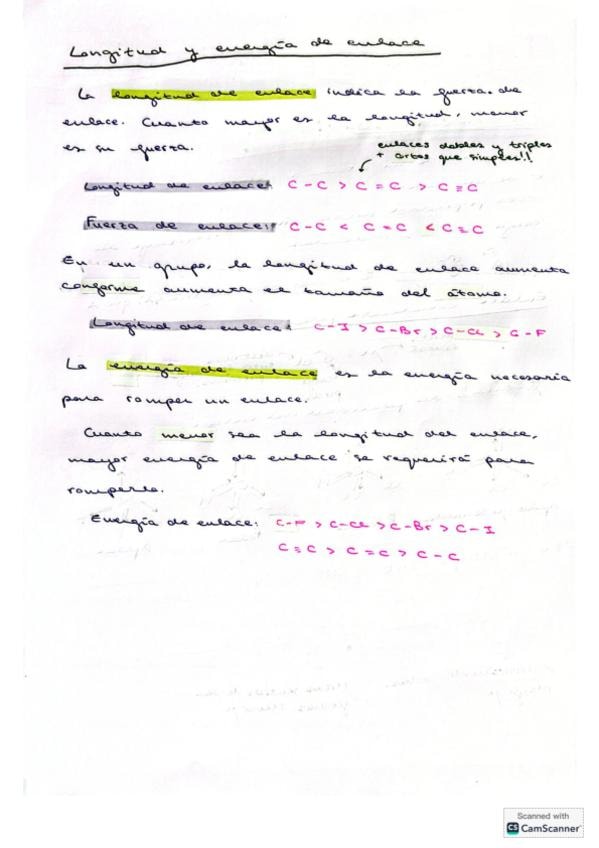 Longitud y energía de enlace
La longitud de enlace indica la fuerza de
enlace. Cuanto mayor es la longitud, menor
es su fuerza.
enlaces dobles y triples
+ cortos que simples!!
Longitud de enlace: C-C > C=C > C≡C
Fuerza de enlace: C-C < C=C < C≡C
En un grupo, la longitud de enlace aumenta
conforme aumenta el tamaño del átomo.
Longitud de enlace: C-I > C-Br > C-Cl > C-F
La energía de enlace es la energía necesaria
para romper un enlace.
Cuanto menor sea la longitud del enlace,
mayor energía de enlace se requerirá para
romperlo.
Energía de enlace: C-F > C-Cl > C-Br > C-I
C≡C > C=C > C-C
Scanned with
CS CamScanner